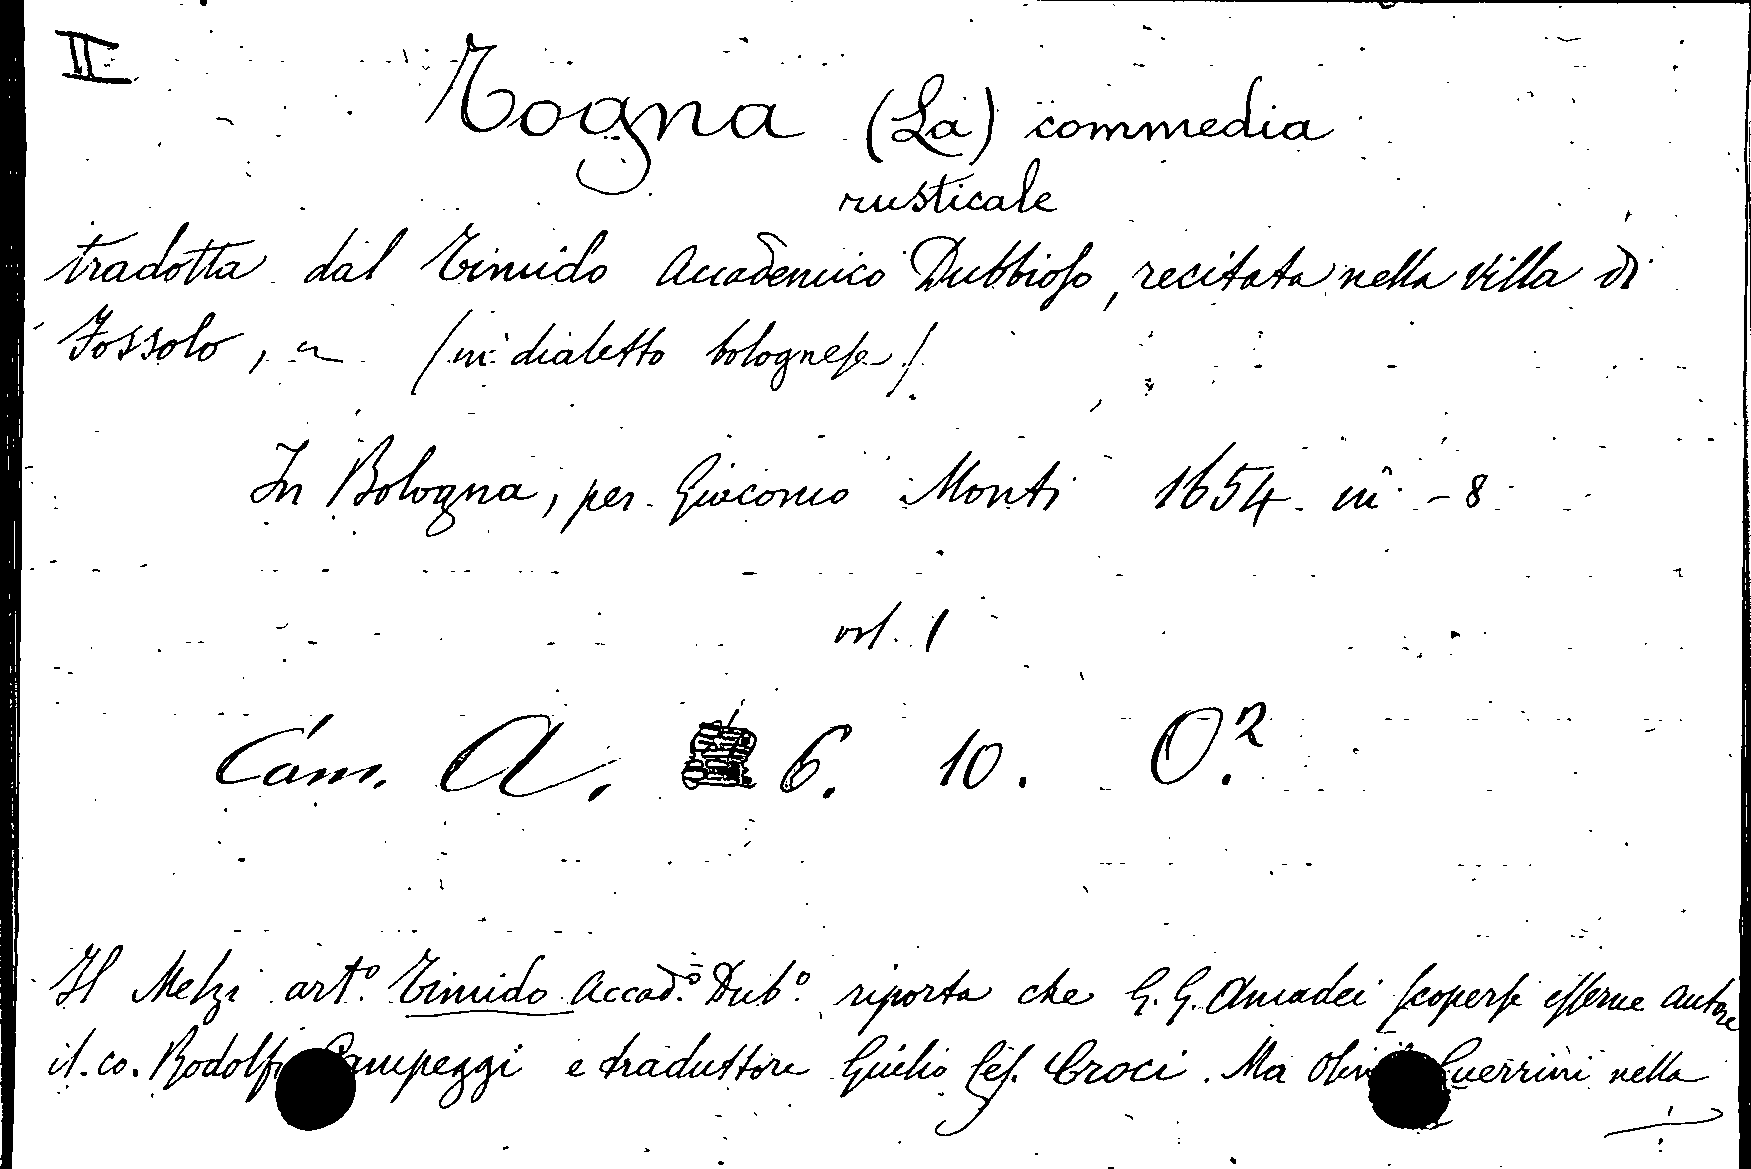 II
Togna (La) commedia
rusticale
tradotta dal Timido Accademico Dubbioso, recitata nella villa di
Fossolo, ~ (in dialetto bolognese).
In Bologna, per Giacomo Monti 1654. in - 8
vol. 1
Cam. A. 6. 10. O.²
Il Melzi art.º Timido Accad.º Dub.º riporta che G. G. Amadei scoperse esserne autore
il co. Rodolfo Campeggi e traduttore Giulio Ces. Croci. Ma Guerrini nella